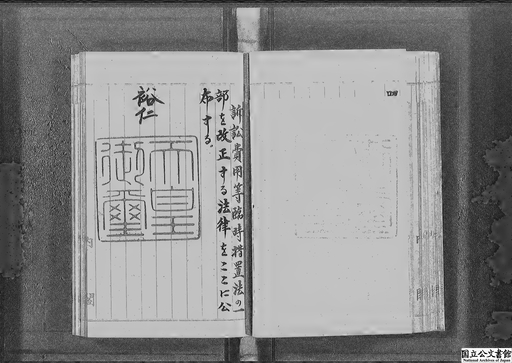 訴訟費用等臨時措置法の一
部を改正する法律をここに公
布する。
裕仁
天皇
御璽
国立公文書館
National Archives of Japan